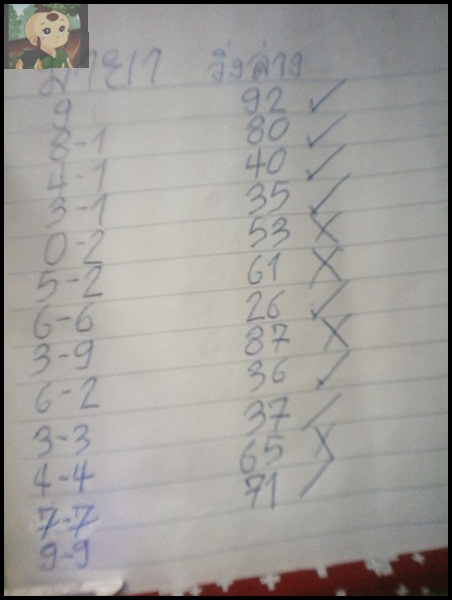 มายา วิ่งล่าง
9 92 ✓
8-1 80 ✓
4-1 40 ✓
3-1 35 ✓
0-2 53 X
5-2 61 X
6-6 26 ✓
3-9 87 X
6-2 36 ✓
3-3 37 ✓
4-4 65 X
7-7 71 ✓
9-9